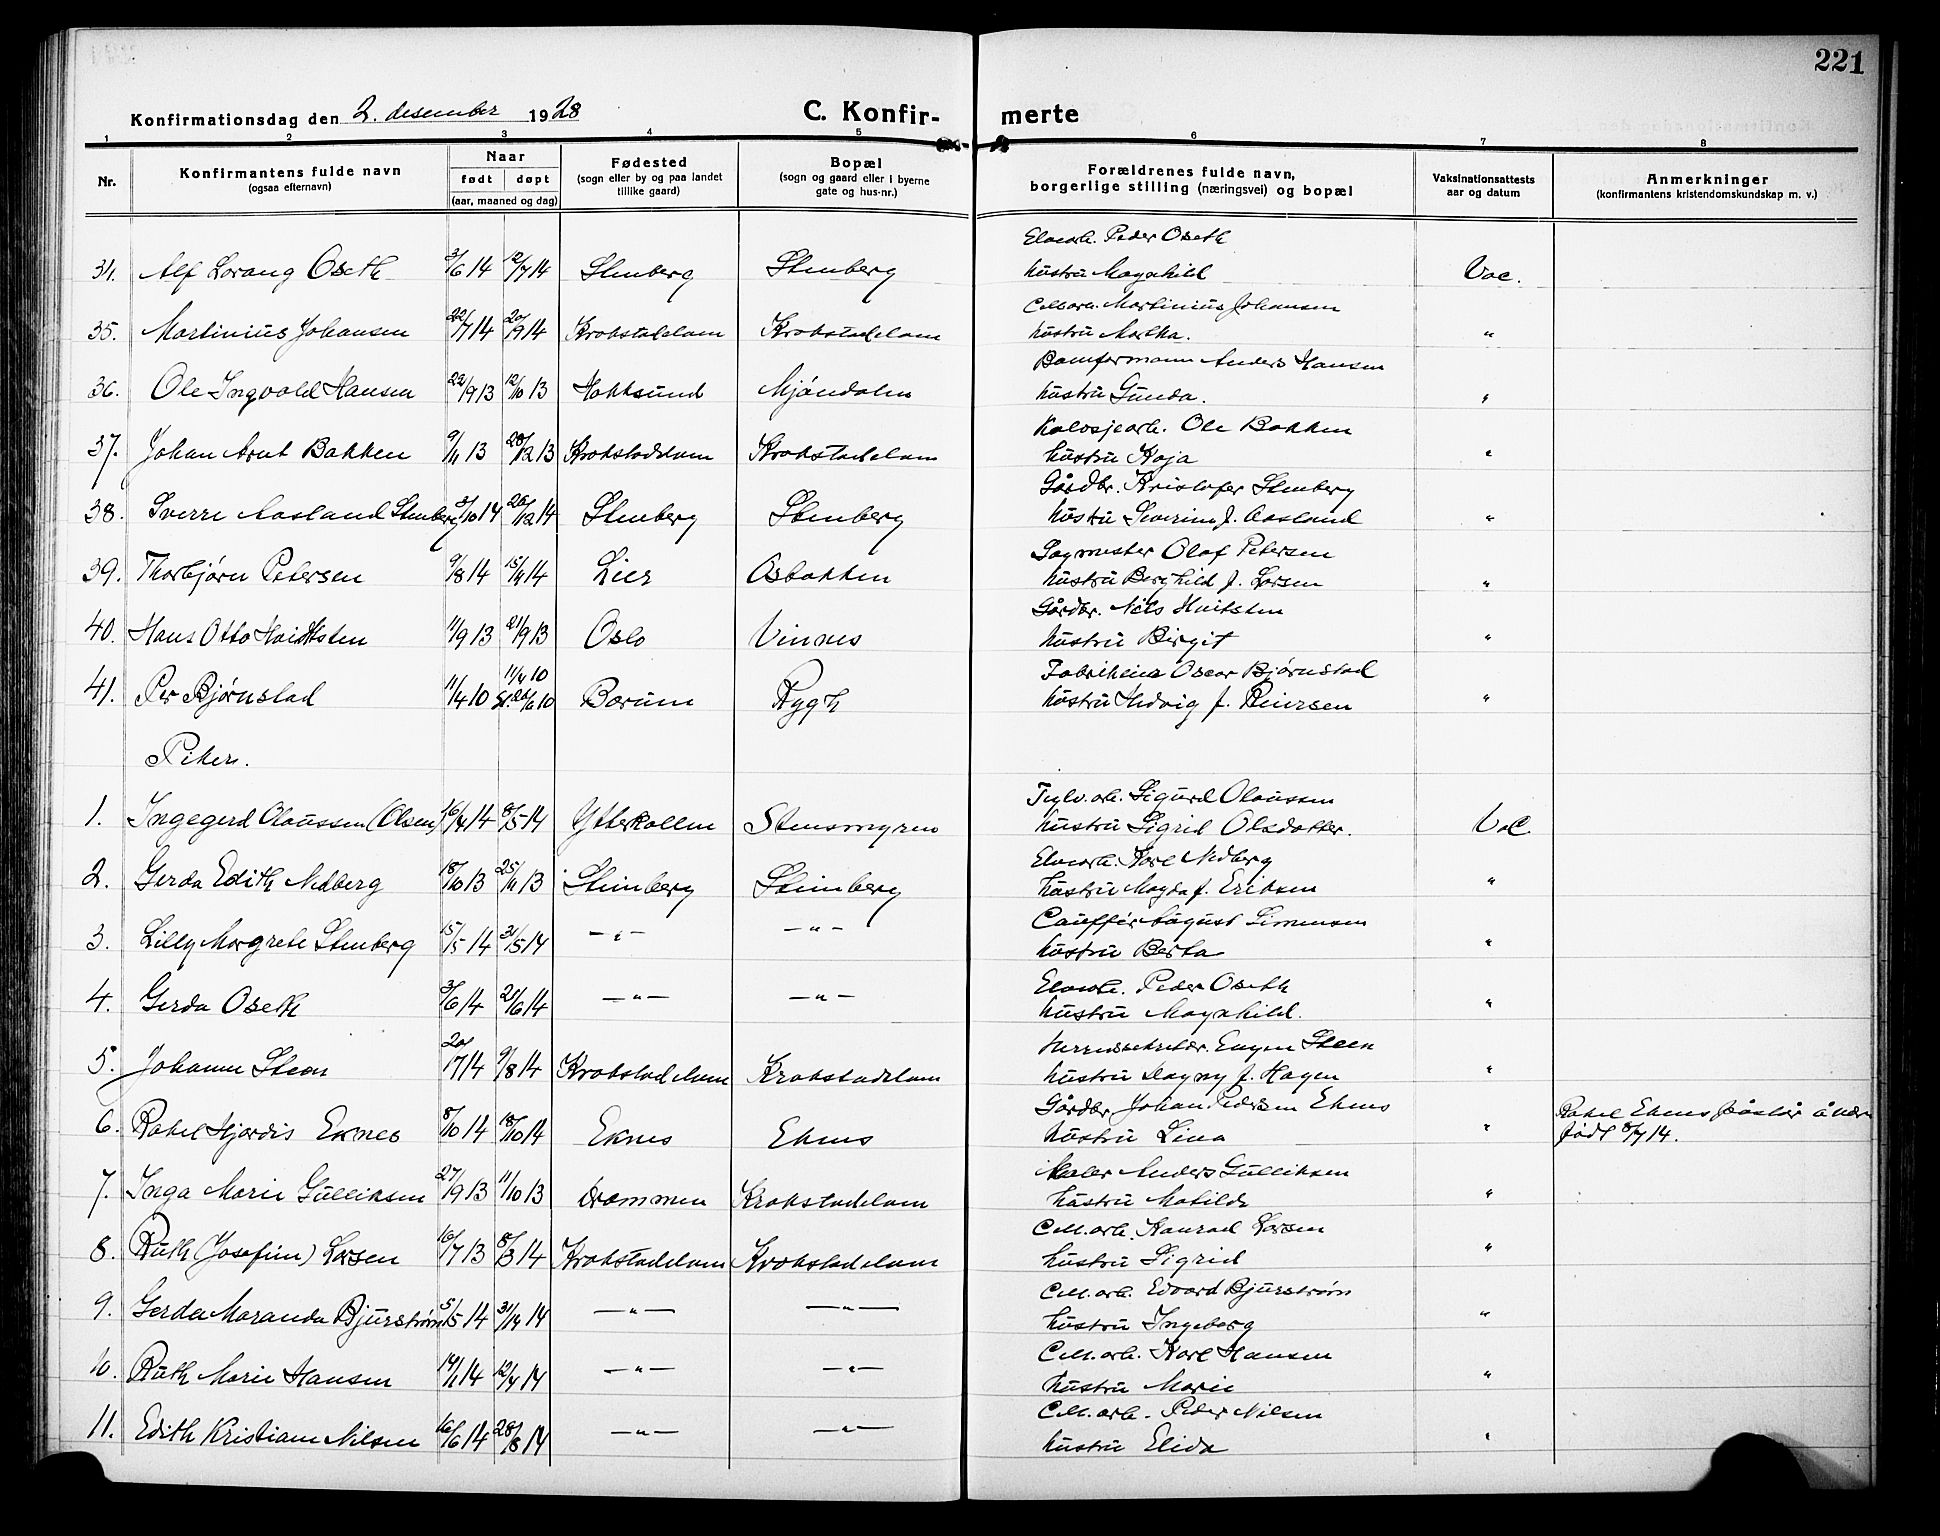 221
Konfirmationsdag den 2. desember 1928
C. Konfir- merte
1 2 3 4 5 6 7 8
Nr.
Konfirmantens fulde navn
(ogsaa efternavn)
Naar
født døpt
(aar, maaned og dag)
Fødested
(sogn eller by og paa landet
tillike gaard)
Bopæl
(sogn og gaard eller i byerne
gate og hus-nr.)
Forældrenes fulde navn,
borgerlige stilling (næringsvei) og bopæl
Vaksinationsattests
aar og datum
Anmerkninger
(konfirmantens kristendomskundskap m. v.)
Elvearb. Peder Oseth
34. Alf Lorang Oseth 3/6 14 12/7 14 Stenberg Stenberg hustru Magnhild Vac.
Cell.arb. Martinius Johansen
35. Martinius Johansen 22/7 14 20/9 14 Krokstadelven Krokstadelven hustru Martha. "
Bomformann Anders Hansen
36. Ole Ingvald Hansen 22/9 13 12/10 13 Hokksund Mjøndalen hustru Gunda. "
Kalosjearb. Ole Bakken
37. Johan Arnt Bakken 9/11 13 28/12 13 Krokstadelven Krokstadelven hustru Kaja "
Gårdbr. Kristofer Stenberg
38. Sverre Aasland Stenberg 3/10 14 26/12 14 Stenberg Stenberg hustru Severine f. Aasland "
Sagmester Olaf Petersen
39. Thorbjørn Petersen 9/8 14 15/11 14 Lier Åsbakken hustru Berghild f. Larsen "
Gårdbr. Nils Hvitsten
40. Hans Otto Hvidtsten 11/9 13 21/9 13 Oslo Vinnes hustru Birgit "
11/4 10 Fabrikeier Oscar Bjørnstad
41. Per Bjørnstad 11/4 10 St. 26/6 10 Bærum Rygh hustru Hedvig f. Reiersen "
Piker.
Teglv.arb. Sigurd Olaussen
1. Ingegerd Olaussen (Olsen) 16/4 14 8/5 14 Ytterkollen Stensmyren hustru Sigrid Olsdatter. Vac.
Elvearb. Karl Nedberg
2. Gerda Edith Nedberg 18/10 13 25/11 13 Stenberg Stenberg hustru Magda f. Eriksen "
Cauffør August Simensen
3. Lilly Margrete Stenberg 15/5 14 31/5 14 — " — — " — hustru Berta "
Elvearb. Peder Oseth
4. Gerda Oseth 3/6 14 21/6 14 — " — — " — hustru Magnhild. "
Herredssekretær. Eugen Steen
5. Johanne Steen 20/7 14 9/8 14 Krokstadelven Krokstadelven hustru Dagny f. Hagen "
Gårdbr. Johan Pedersen Eknes Rakel Eknes påstår å være
6. Rakel Hjørdis Eknes 8/10 14 18/10 14 Eknes Eknes hustru Lina " født 8/7 14.
Maler Anders Gulliksen
7. Inga Marie Gulliksen 27/9 13 11/10 13 Drammen Krokstadelven hustru Matilde "
Cell.arb. Konrad Larsen
8. Ruth (Josefine) Larsen 16/7 13 8/3 14 Krokstadelven Krokstadelven hustru Sigrid "
Cell.arb. Edvard Bjurstrøm
9. Gerda Maranda Bjurstrøm 5/5 14 14 — " — — " — hustru Ingeborg "
Cell.arb. Karl Hansen
10. Ruth Marie Hansen 14/1 14 12/4 14 — " — — " — hustru Marie "
Cell.arb. Peder Nilsen
11. Edith Kristiane Nilsen 16/6 14 28/8 14 — " — — " — hustru Elida "